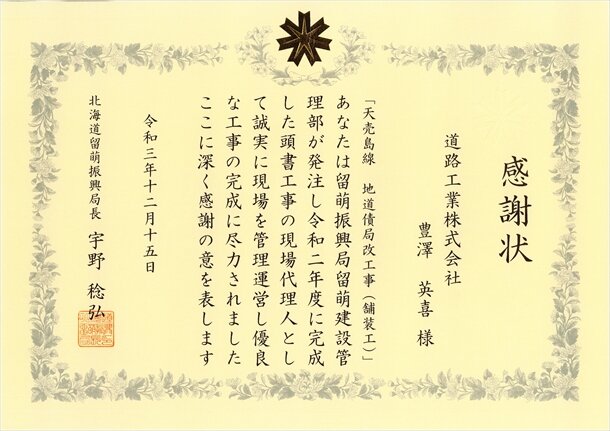 感謝状
道路工業株式会社
豊澤 英喜 様
「天売島線 地道債局改工事（舗装工）」
あなたは留萌振興局留萌建設管
理部が発注し令和二年度に完成
した頭書工事の現場代理人とし
て誠実に現場を管理運営し優良
な工事の完成に尽力されました
ここに深く感謝の意を表します
令和三年十二月十五日
北海道留萌振興局長 宇野 稔弘